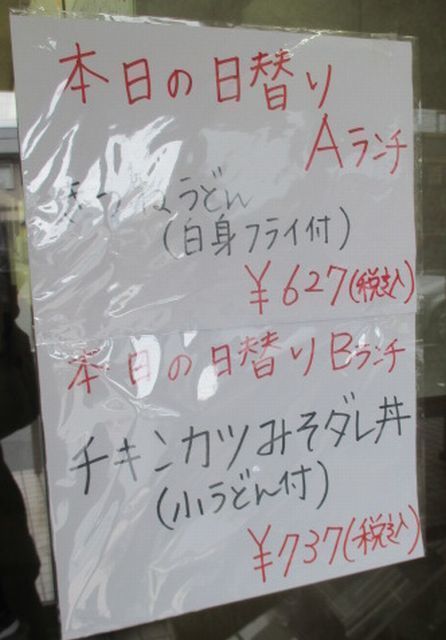 本日の日替り
Aランチ
きつねうどん
(自身フライ付)
¥627(税込)
本日の日替りBランチ
チキンカツみそダレ丼
(小うどん付)
¥737(税込)